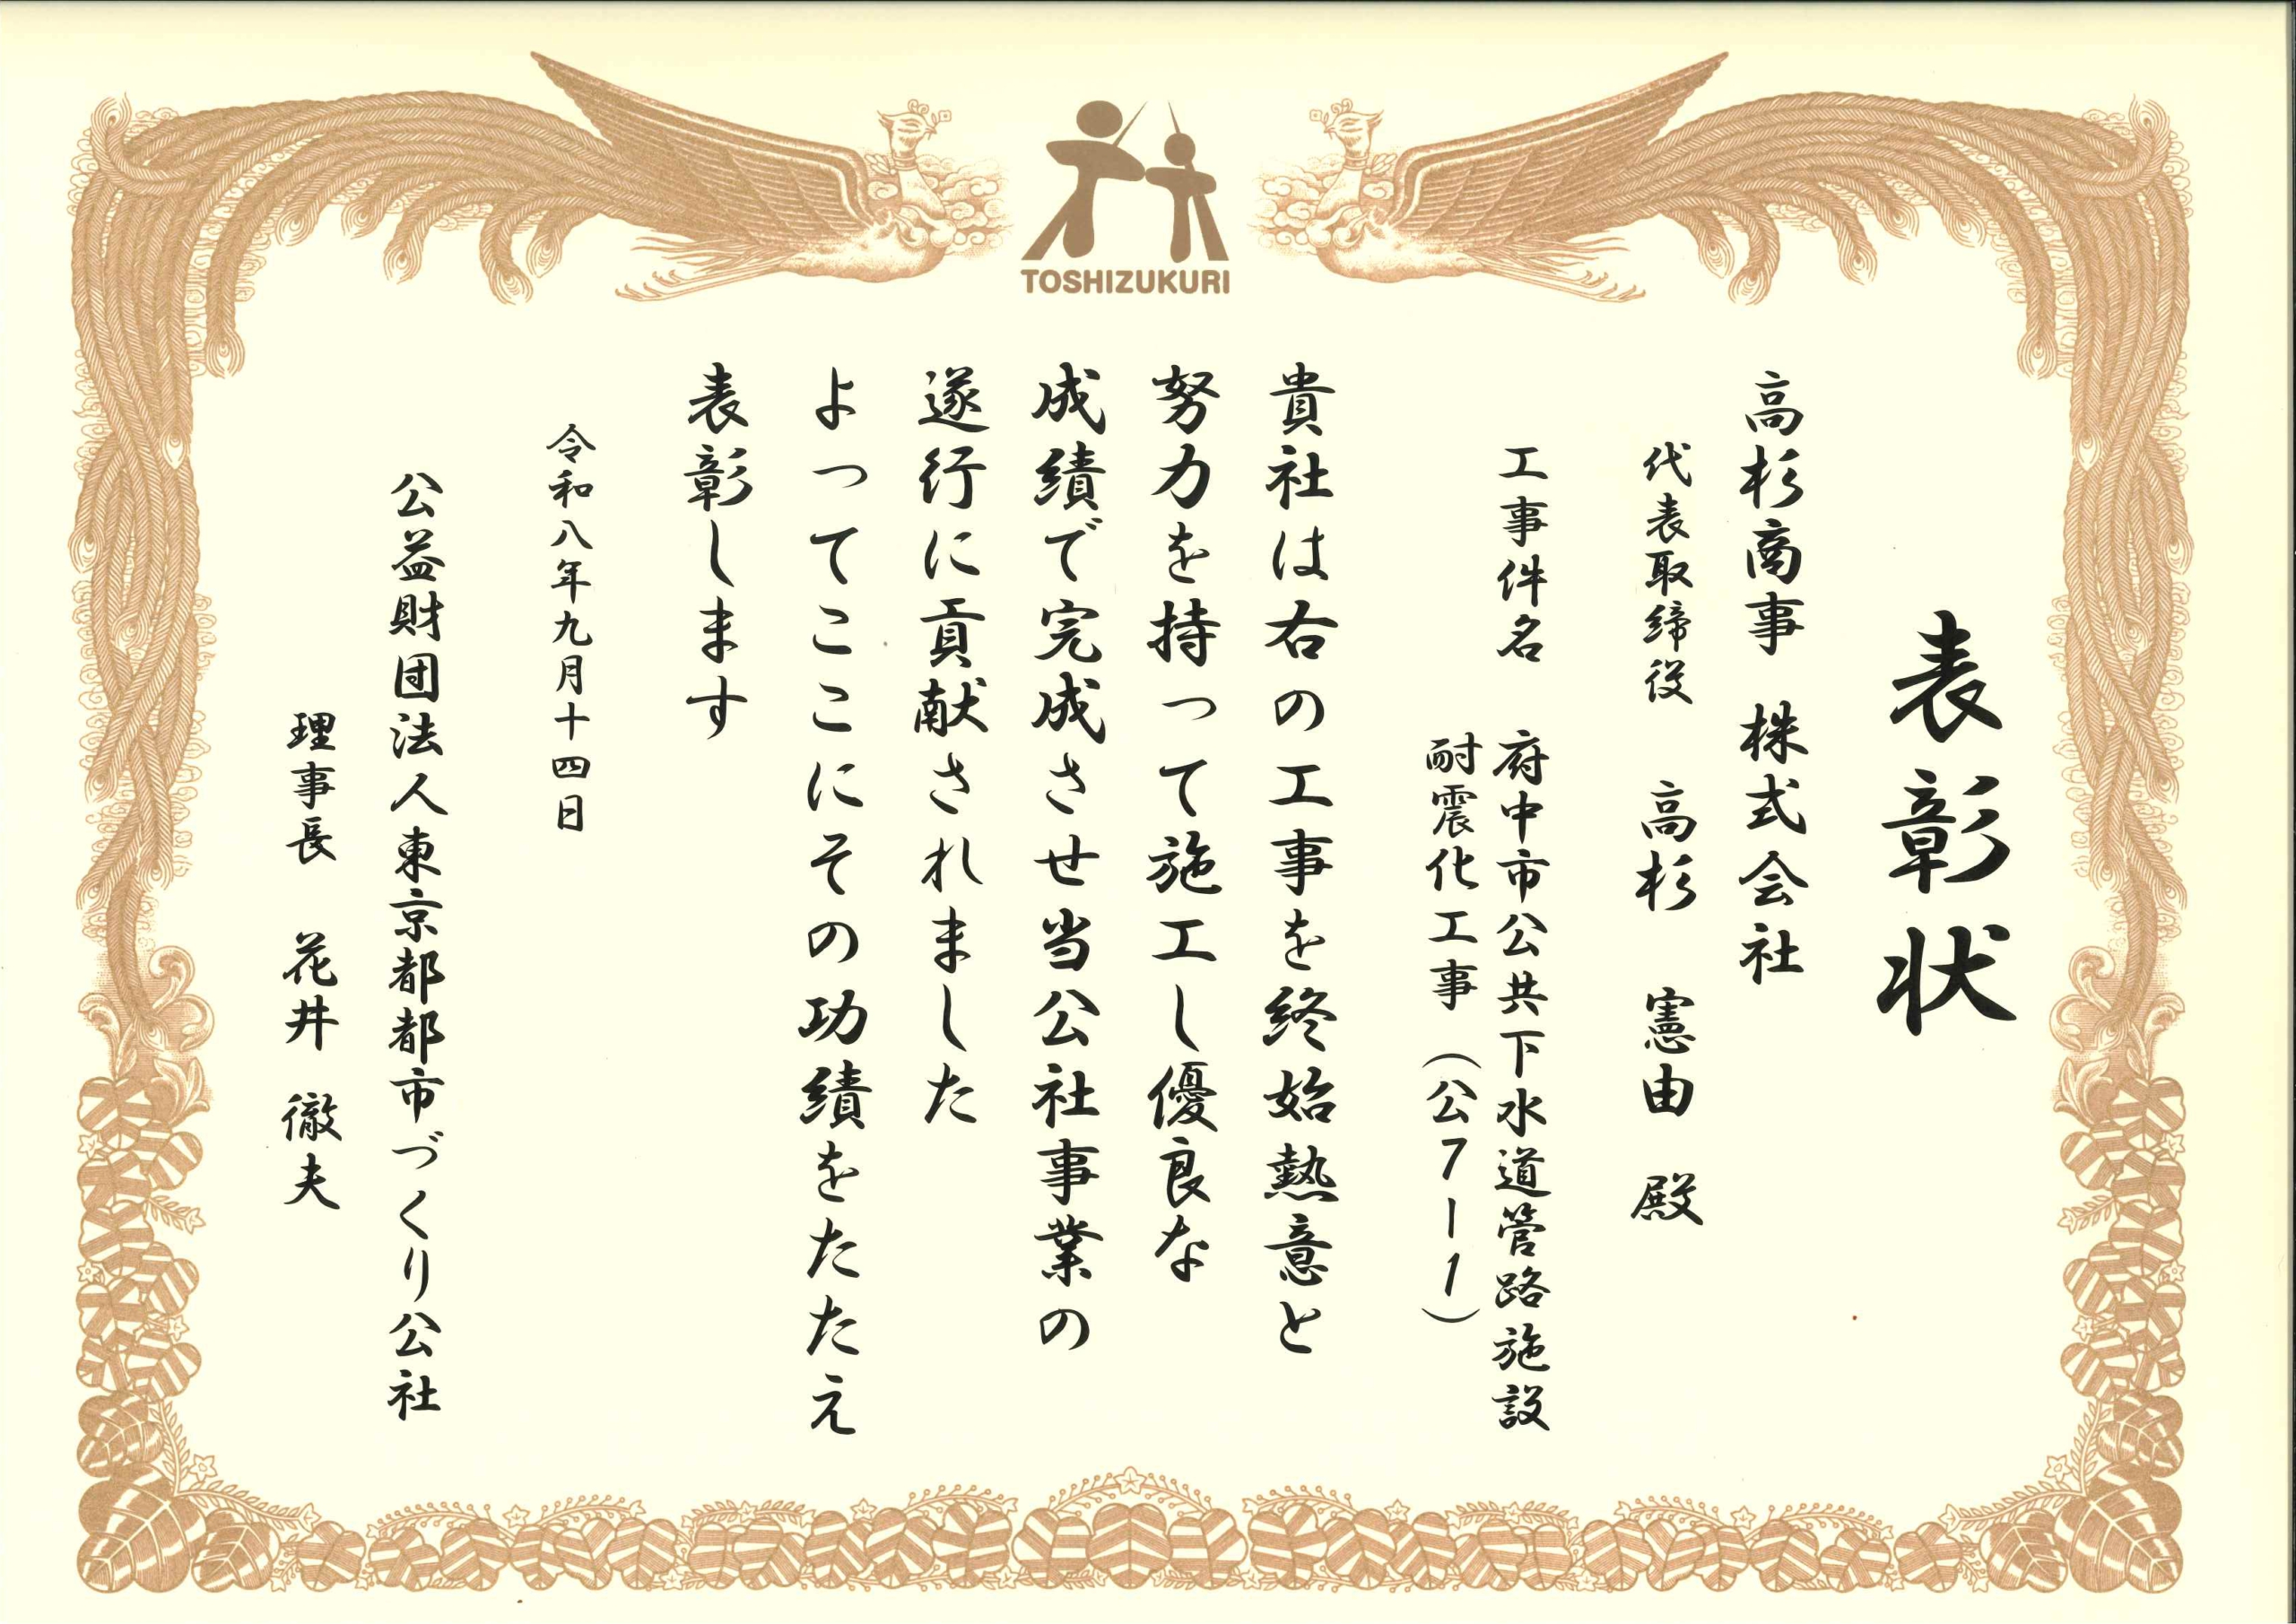 TOSHIZUKURI
表彰状
高杉商事　株式会社
代表取締役　高杉　憲由　殿
工事件名　府中市公共下水道管路施設
耐震化工事（公7ー1）
貴社は右の工事を終始熱意と
努力を持って施工し優良な
成績で完成させ当公社事業の
遂行に貢献されました
よってここにその功績をたたえ
表彰します
令和八年九月十四日
公益財団法人東京都都市づくり公社
理事長　花井　徹夫